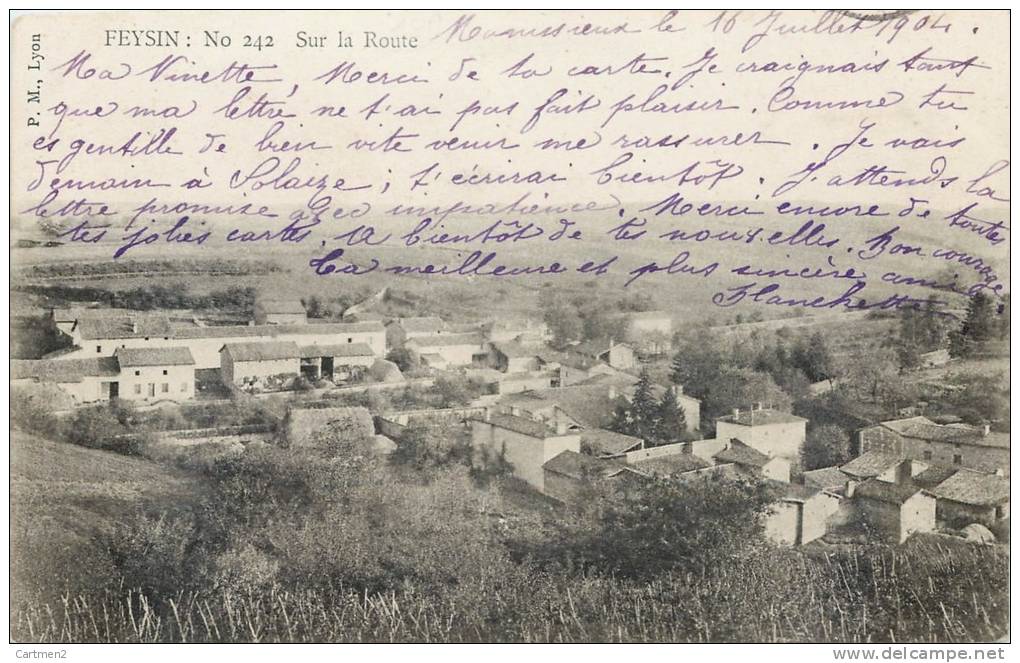 FEYSIN : No 242 Sur la Route
P. M., Lyon
le 16 Juillet 1904.
Ma Ninette, Merci de ta carte. Je craignais tant
que ma lettre ne t'ai pas fait plaisir. Comme tu
es gentille de bien vite venir me rassurer. Je vais
demain à Solaize ; t'écrirai bientôt. J'attends la
lettre promise avec impatience. Merci encore de toutes
tes jolies cartes. A bientôt de tes nouvelles. Bon courage
Ta meilleure et plus sincère amie.
Blanchette
Cartmen2
www.delcampe.net